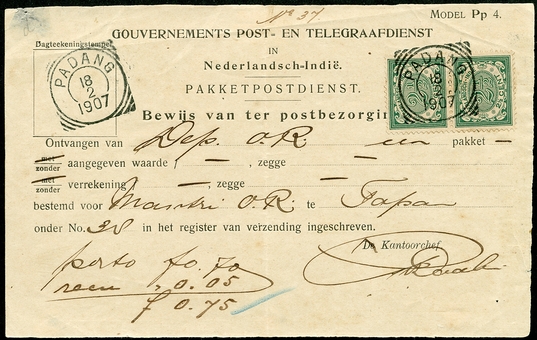 No 37.
MODEL Pp 4.
GOUVERNEMENTS POST- EN TELEGRAAFDIENST
IN
Nederlandsch-Indië.
PAKKETPOSTDIENST.
Dagteekeningstempel
PADANG
18
2
1907
PADANG
18
2
1907
2½
2½
Bewijs van ter postbezorging
Ontvangen van Dep. O.R. een pakket —
met
zonder aangegeven waarde, —, zegge —
met
zonder verrekening —, zegge —
bestemd voor Mantri O.R. te Tapan
onder No. 38 in het register van verzending ingeschreven.
De Kantoorchef
porto f0.70
recu - 0.05
f 0.75